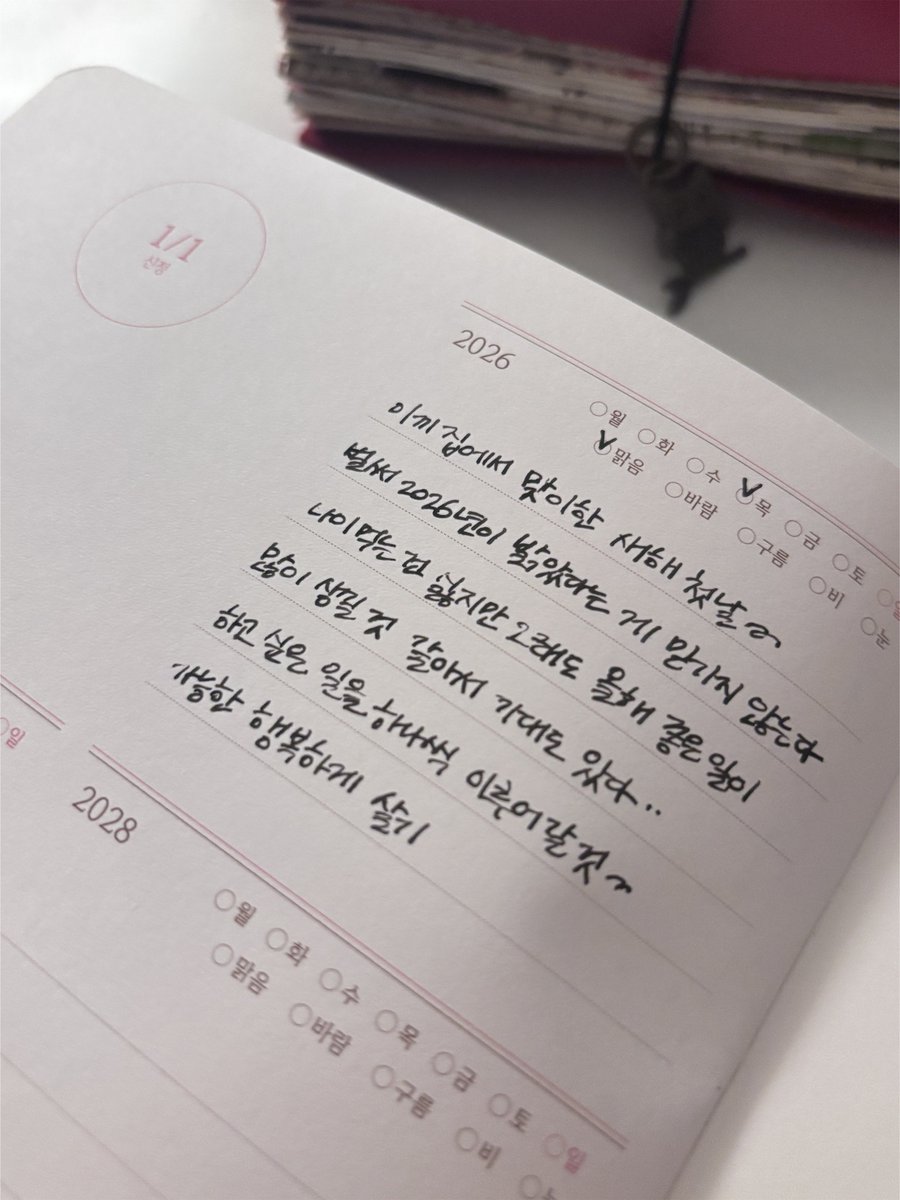 1/1
신정
2026
월 화 수 목 금 토 일
맑음 바람 구름 비 눈
이끼 집에서 맞이한 새해 첫날~
벌써 2026년이 밝았다는 게 믿기지 않는다
나이 먹는 건 싫지만 그래도 올해 좋은 일이
많이 생길 것 같아서 기대도 있다..
하고 싶은 일을 하나씩 이루어갈 것~
가능한 행복하게 살기
일
2028
월 화 수 목 금 토 일
맑음 바람 구름 비